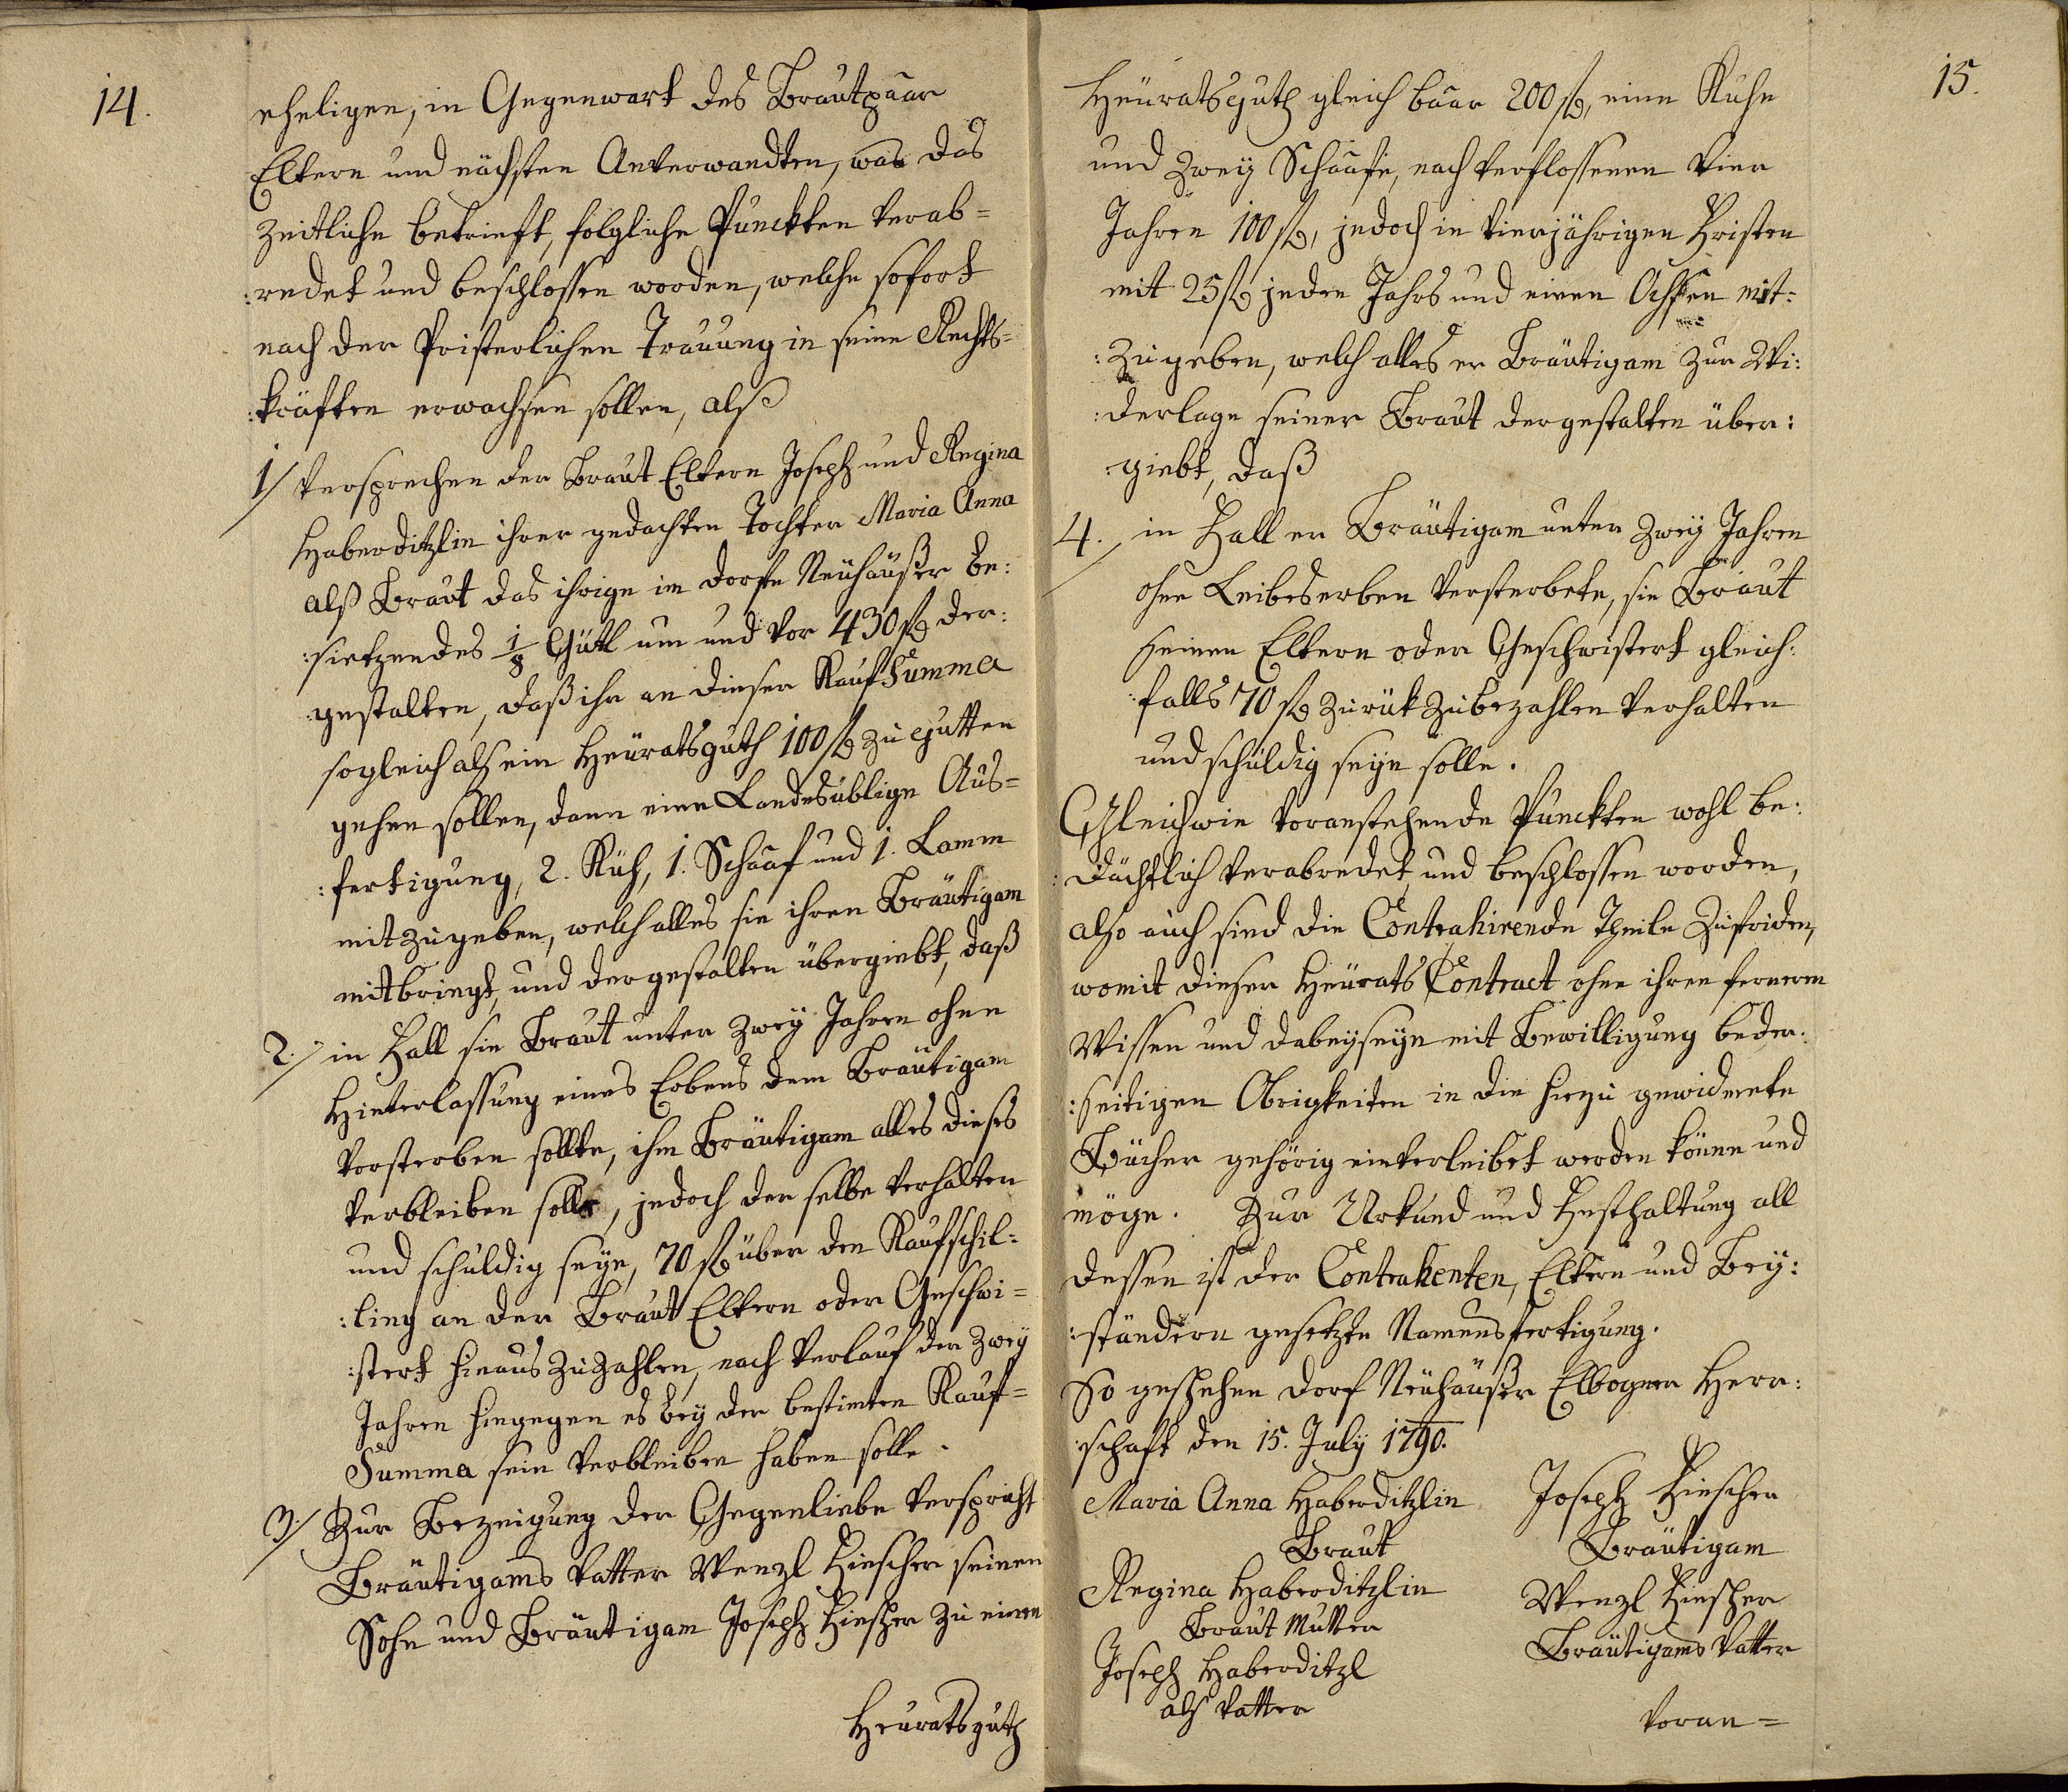 14.
eheligen, in Gegenwart des Brautpaar
Eltern und nächsten Anverwandten, was das
Zeitliche betrieft, folgliche Punckten verab=
:redet und beschlossen worden, welche sofort
nach der Pristerlichen Trauung in seine Rechts=
:kräften erwachsen sollen, alß
1/ Versprechen der Braut Eltern Joseph und Regina
Haberditzlin ihrer gedachten Tochter Maria Anna
alß Braut das ihrige im Dorfe Neuhäußer be:
:sietzendes 1/8 Gütl um und vor 430 fl der:
:gestalten, daß ihr an dieser Kauf Summa
sogleich als ein Heüratsguth 100 fl zu gutten
gehen sollen, dann eine Landesüblige Aus=
:fertigung, 2. Küh, 1. Schaaf und 1. Lamm
mitzugeben, welch alles sie ihren Bräutigam
mitbringt, und dergestalten übergiebt, daß
2./ in Fall sie Braut unter zwey Jahren ohne
Hinterlassung eines Erbens dem Bräutigam
vorsterben sollte, ihm Bräutigam alles dieses
verbleiben solle, jedoch der selbe verhalten
und schuldig seye, 70 fl über den Kaufschil:
:ling an der Braut Eltern oder Geschwi=
:stert hinaus zu zahlen, nach Verlauf der zwey
Jahren hingegen es bey der bestimten Kauf=
Summa sein Verbleiben haben solle.
3./ Zur Bezeigung der Gegenliebe verspricht
Bräutigams Vatter Wenzl Fischer seinen
Sohn und Bräutigam Joseph Fischer zu einen
Heuratsguth
15.
Heüratsguth gleich baar 200 fl, eine Kuhe
und zwey Schaafe, nach verflossenen vier
Jahren 100 fl, jedoch in vierjährigen Fristen
mit 25 fl jeden Jahrs und einen Ochsen mit:
:zugeben, welch alles er Bräutigam zur Wi:
:derlage seiner Braut dergestalten über:
:giebt, daß
4./ in Fall er Bräutigam unter zwey Jahren
ohne Leibeserben versterbete, sie Braut
seinen Eltern oder Geschwistert gleich:
:falls 70 fl zurük zubezahlen verhalten
und schuldig seye solle.
Gleichwie voranstehende Punckten wohl be:
:dächtlich verabredet, und beschlossen worden,
also auch sind die Contrahirende Theile zufriden,
womit dieser Heürats Contract ohne ihren fernern
Wissen und dabeyseyn mit Bewilligung beder:
:seitigen Obrigkeiten in die hiezu gewidmete
Bücher gehörig einverleibet werden könne und
möge. Zur Urkund und Festhaltung all
dessen ist der Contrahenten, Eltern und Bey:
:ständern gesetzte Namensfertigung.
So geschehen Dorf Neuhäußer Elbogner Herr:
:schaft den 15. July 1790.
Maria Anna Haberditzlin
Braut
Joseph Fischer
Bräutigam
Regina Haberditzlin
Braut Mutter
Wenzl Fischer
Bräutigams Vatter
Joseph Haberditzl
als Vatter
voran=